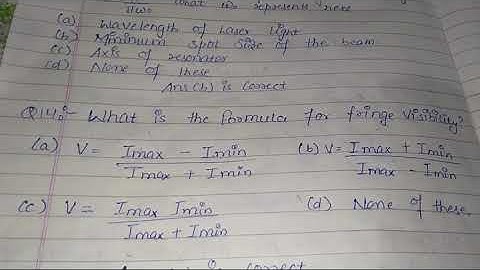 what w₀ represents here
πw₀
(a) Wavelength of Laser light
(b) Minimum spot size of the beam
(c) Axis of resonator
(d) None of these
Ans (b) is correct
Q14:- What is the formula for fringe visibility?
(a) V = Imax - Imin / Imax + Imin (b) V = Imax + Imin / Imax - Imin
(c) V = Imax Imin / Imax + Imin (d) None of these.
is correct